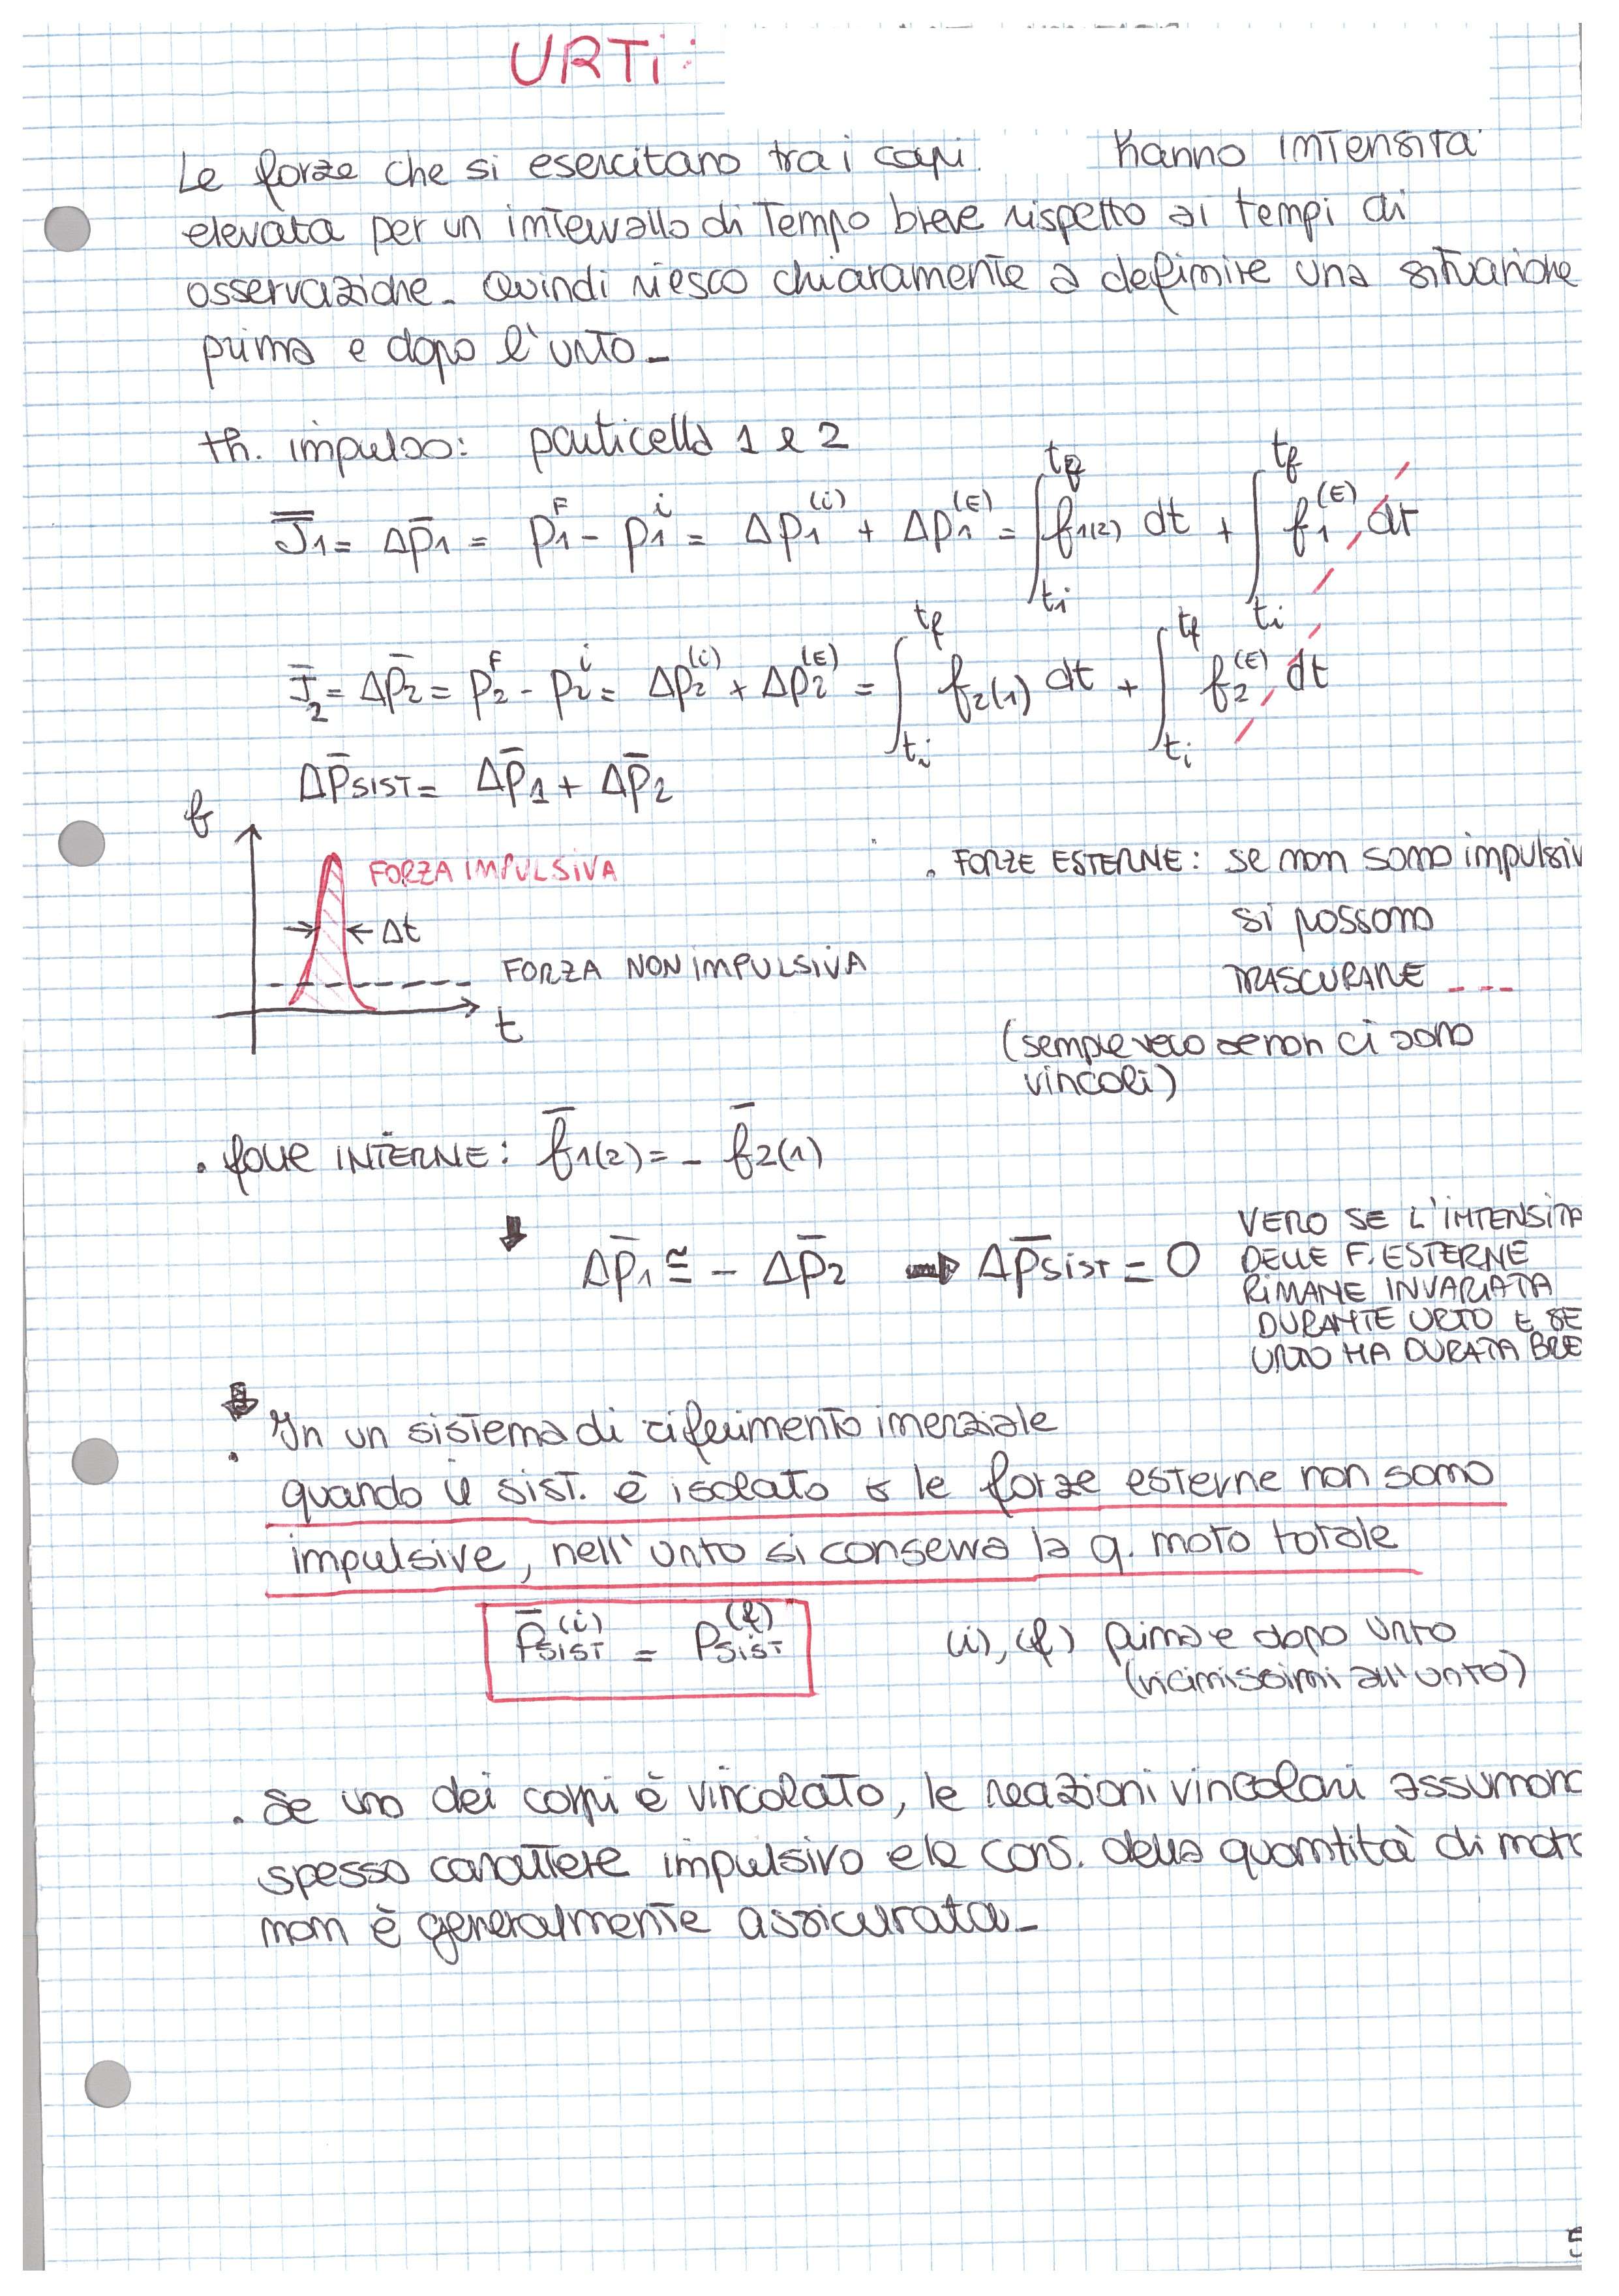 URTi:
Le forze che si esercitano tra i corpi hanno intensità
elevata per un intervallo di tempo breve rispetto ai tempi di
osservazione. Quindi riesco chiaramente a definire una situazione
prima e dopo l'urto.
th. impulso: particella 1 e 2
J̄1 = Δp̄1 = p1^F - p1^i = Δp1^(i) + Δp1^(E) = ∫ti^tf f1(2) dt + ∫ti^tf f1^(E) dt
J̄2 = Δp̄2 = p2^F - p2^i = Δp2^(i) + Δp2^(E) = ∫ti^tf f2(1) dt + ∫ti^tf f2^(E) dt
Δp̄SIST = Δp̄1 + Δp̄2
f
FORZA IMPULSIVA
→ ← Δt
FORZA NON IMPULSIVA
t
. FORZE ESTERNE: se non sono impulsiv
si possono
TRASCURARE ---
(sempre vero se non ci sono
vincoli)
. forze INTERNE: f̄1(2) = - f̄2(1)
⬇
Δp̄1 ≅ - Δp̄2 ➡ Δp̄SIST = 0
VERO SE L'INTENSITA
DELLE F. ESTERNE
RIMANE INVARIATA
DURANTE URTO E SE
URTO HA DURATA BRE
⬇
. In un sistema di riferimento inerziale
quando il sist. è isolato o le forze esterne non sono
impulsive, nell'urto si conserva la q. moto totale
P̄SIST^(i) = PSIST^(f)
(i), (f) prima e dopo urto
(vicinissimi all'urto)
. Se uno dei corpi è vincolato, le reazioni vincolari assumono
spesso carattere impulsivo e la cons. della quantità di moto
non è generalmente assicurata.
5